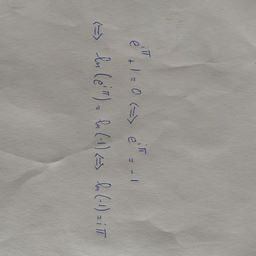 e^{iπ} + 1 = 0 <=> e^{iπ} = -1
<=> ln(e^{iπ}) = ln(-1) <=> ln(-1) = iπ